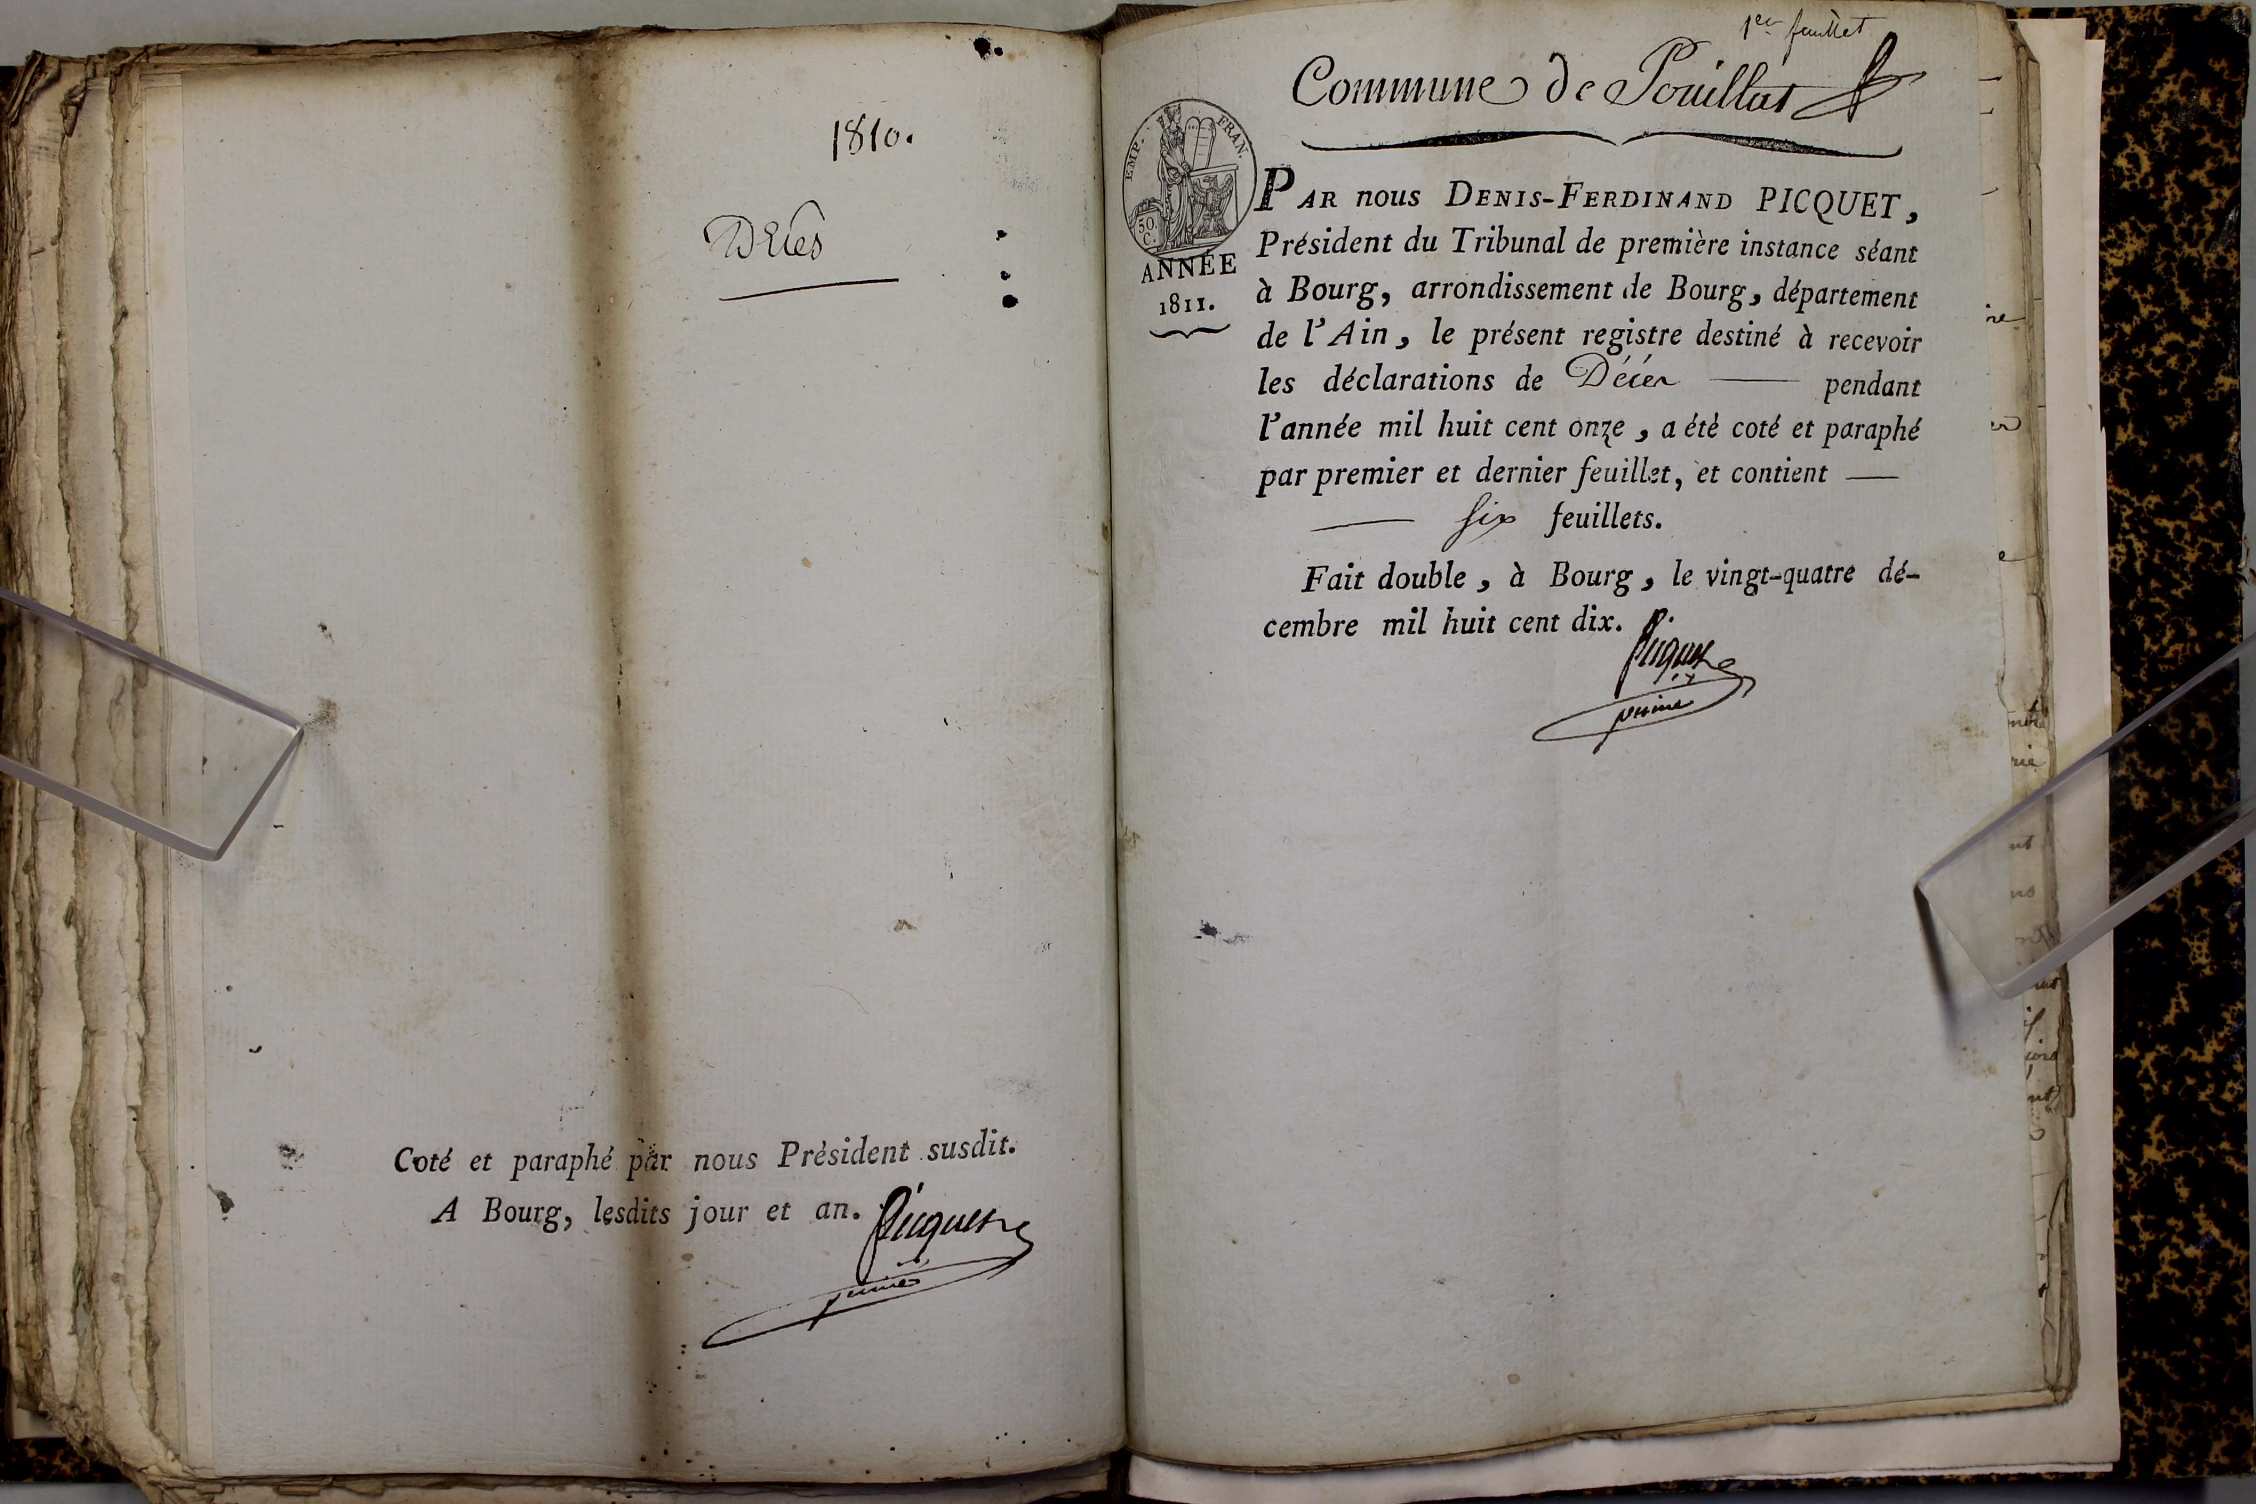 1810.
Décès
Coté et paraphé par nous Président susdit.
A Bourg, lesdits jour et an.
Picquet
1er feuillet
Commune de Pouillat
EMP. FRAN.
50
C.
ANNÉE
1811.
PAR nous DENIS-FERDINAND PICQUET,
Président du Tribunal de première instance séant
à Bourg, arrondissement de Bourg, département
de l'Ain, le présent registre destiné à recevoir
les déclarations de Décès pendant
l'année mil huit cent onze, a étè coté et paraphé
par premier et dernier feuillet, et contient —
— six feuillets.
Fait double, à Bourg, le vingt-quatre dé-
cembre mil huit cent dix.
Picquet